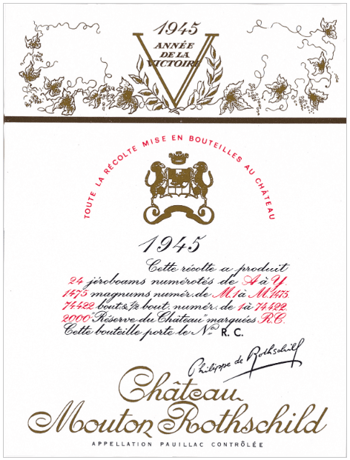 1945
ANNÉE
DE LA
VICTOIRE
TOUTE LA RÉCOLTE MISE EN BOUTEILLES AU CHÂTEAU
1945
Cette récolte a produit
24 jéroboams numérotés de A à Y
1475 magnums numér. de M.1 à M.1475
74422 bout. & ½ bout. numér. de 1 à 74.422
2000 "Réserve du Château" marquées R.C.
Cette bouteille porte le No R.C.
Philippe de Rothschild
Château
Mouton Rothschild
APPELLATION PAUILLAC CONTRÔLÉE